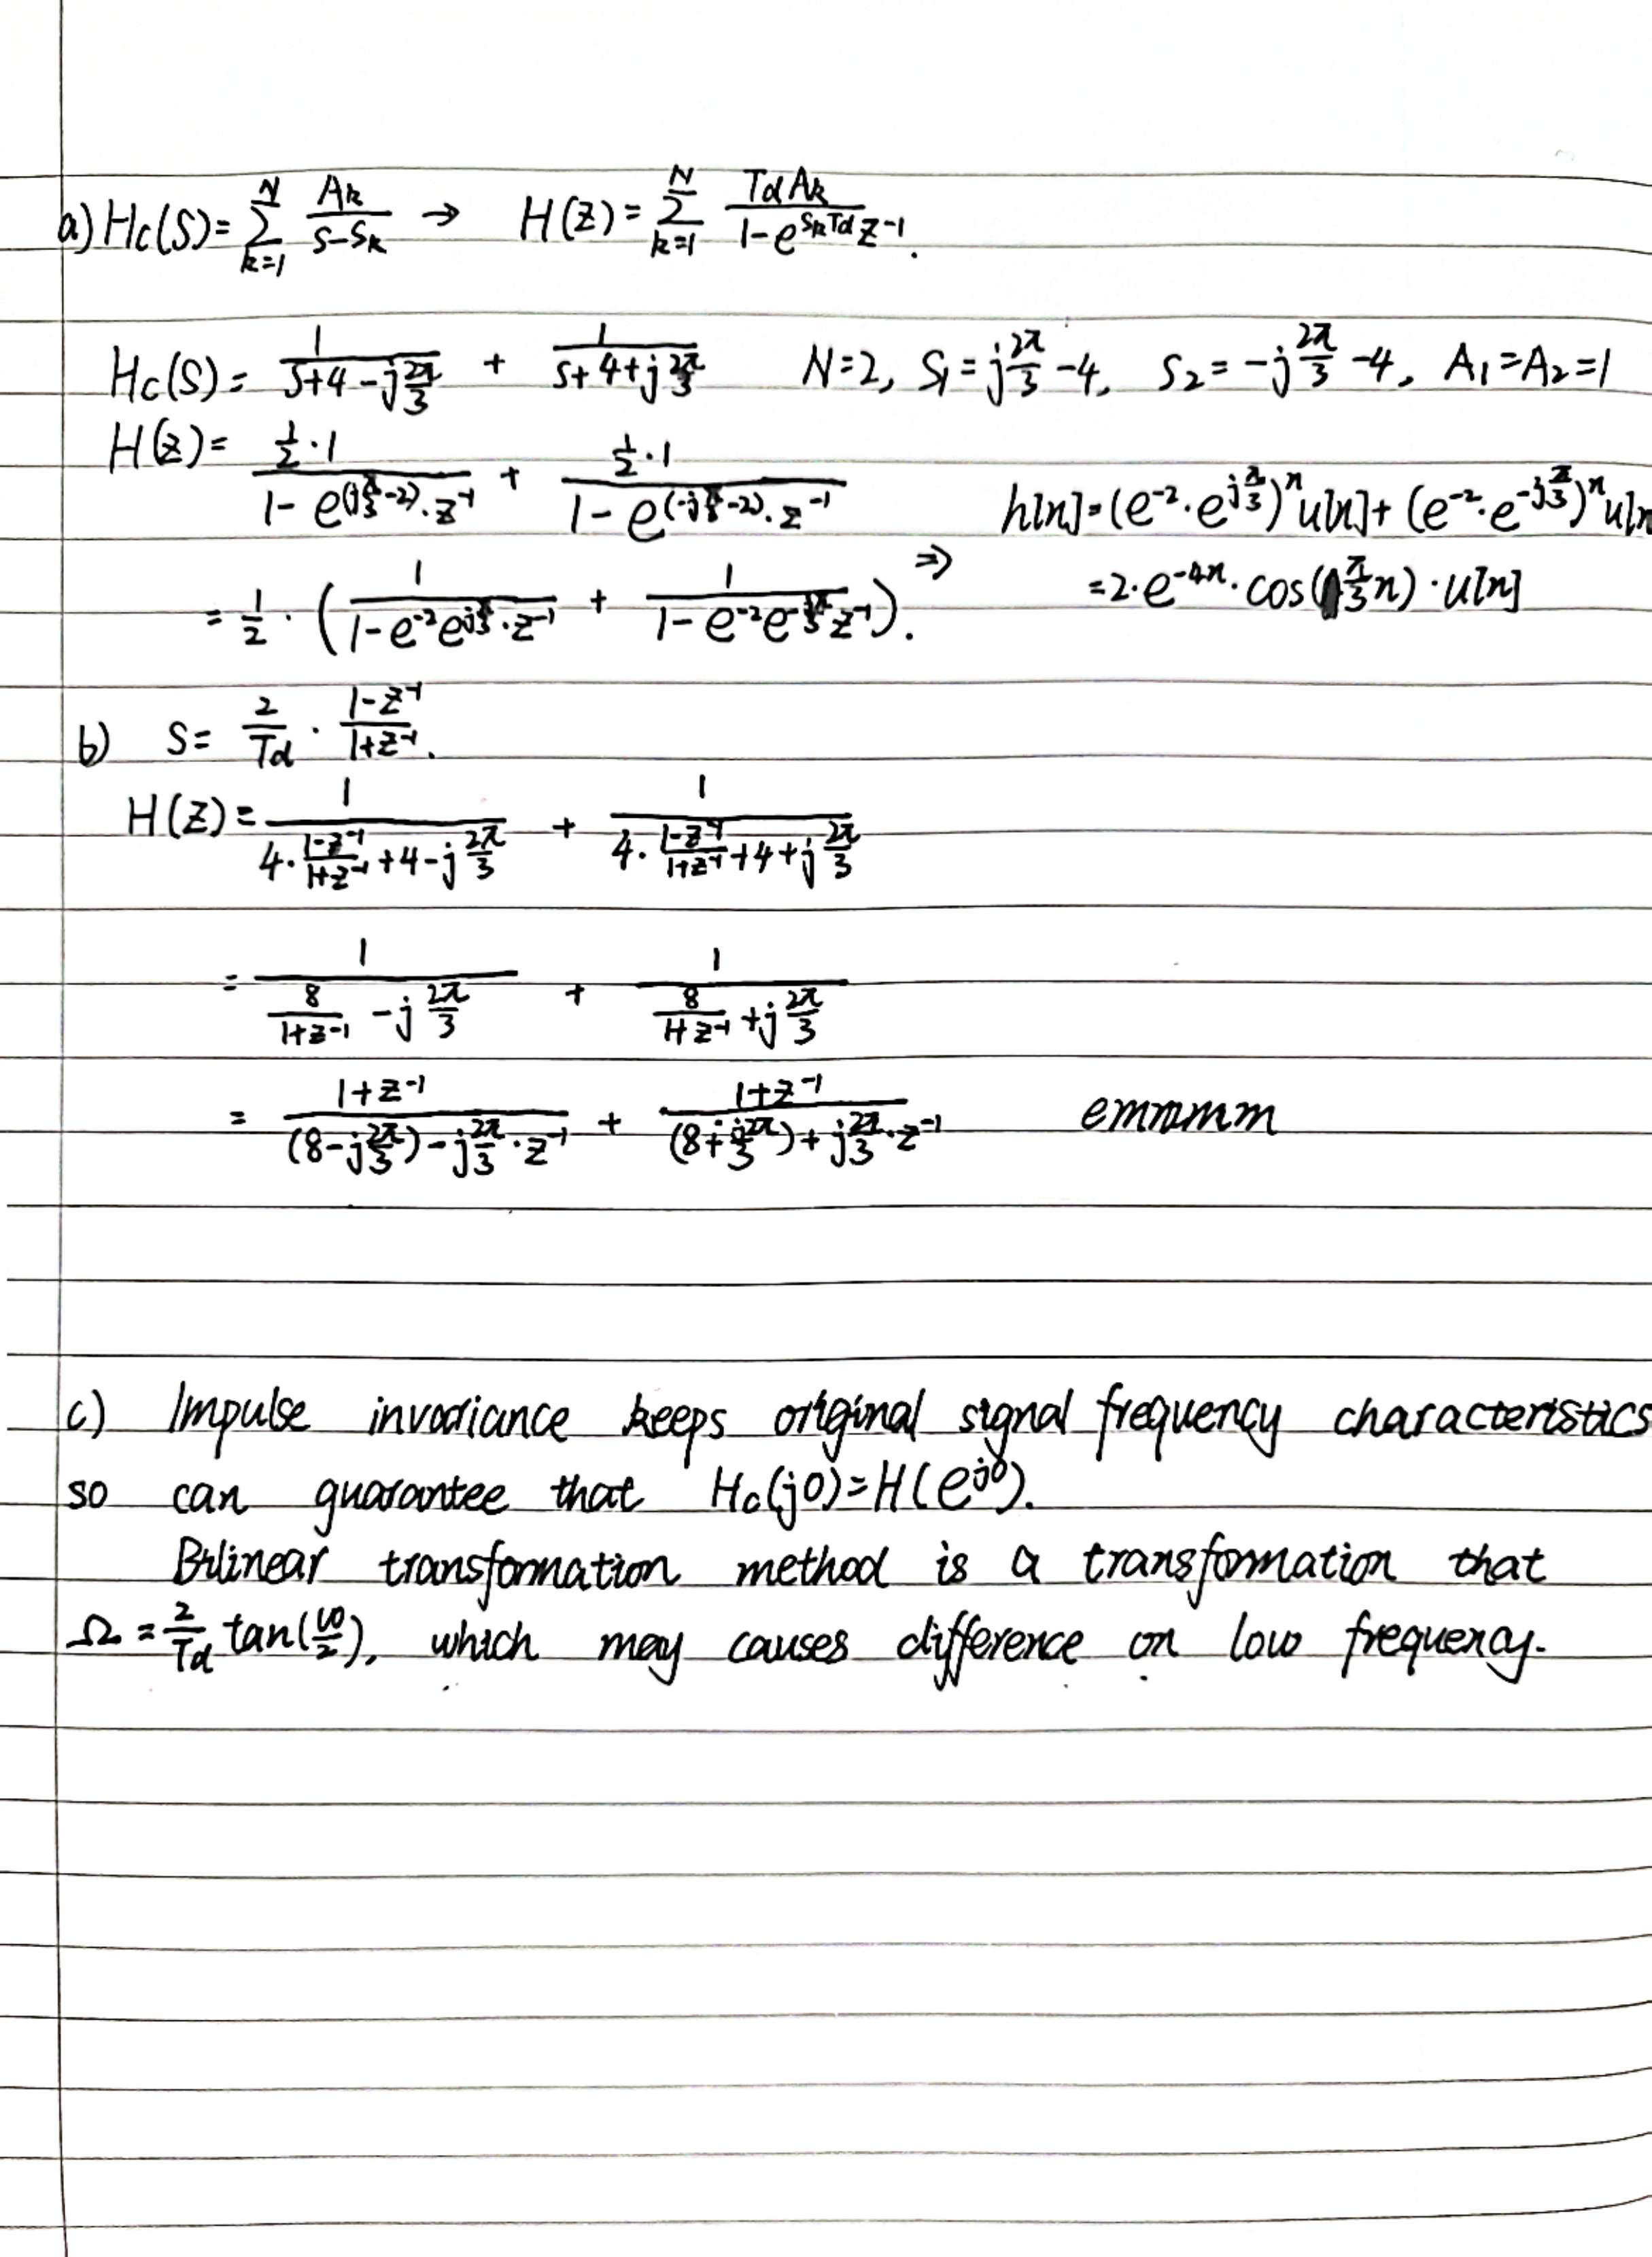 a) Hc(S) = Σ_{k=1}^{N} Ak/(S-Sk) → H(Z) = Σ_{k=1}^{N} TdAk/(1-e^{SkTd}z^{-1}).
Hc(S) = 1/(S+4-j2π/3) + 1/(S+4+j2π/3) N=2, S1=j2π/3-4, S2=-j2π/3-4, A1=A2=1
H(z) = (1/2·1)/(1-e^{(jπ/3-2)}·z^{-1}) + (1/2·1)/(1-e^{(-jπ/3-2)}·z^{-1})
h[n]=(e^{-2}·e^{jπ/3})^n u[n]+(e^{-2}·e^{-jπ/3})^n u[n
= 1/2·(1/(1-e^{-2}e^{jπ/3}·z^{-1}) + 1/(1-e^{-2}e^{-jπ/3}z^{-1})). ⇒
=2·e^{-4n}·cos(π/3 n)·u[n]
b) S= 2/Td · (1-z^{-1})/(1+z^{-1}).
H(Z)= 1/(4·(1-z^{-1})/(1+z^{-1})+4-j2π/3) + 1/(4·(1-z^{-1})/(1+z^{-1})+4+j2π/3)
= 1/(8/(1+z^{-1})-j2π/3) + 1/(8/(1+z^{-1})+j2π/3)
= (1+z^{-1})/((8-j2π/3)-j2π/3·z^{-1}) + (1+z^{-1})/((8+j2π/3)+j2π/3·z^{-1}) emmmm
c) Impulse invariance keeps original signal frequency characteristics
so can guarantee that Hc(j0)=H(e^{j0}).
Bilinear transformation method is a transformation that
Ω=2/Td tan(ω/2), which may causes difference on low frequency.